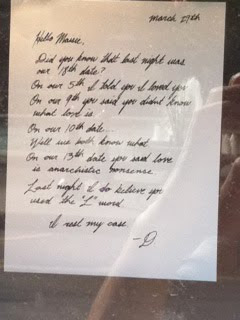 March 27th
Hello Massie,
Did you know that last night was
our 18th date?
On our 5th I told you I loved you
On our 9th you said you didn't know
what love is.
On our 10th date...
Well we both know what
On our 13th date you said love
is anarchistic nonsense
Last night I do believe you
used the "L" word.
I rest my case
-D